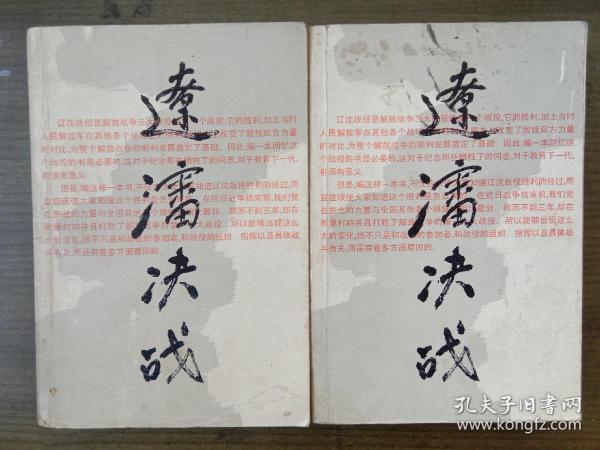 遼瀋决战
辽沈战役是解放战争三大战 个战役,它的胜利,加上当时
人民解放军在其他各个战 改变了敌我双方力量
的对比,为整个解放战争的顺利发展奠定了基础. 因此,编一本回忆
这个战役的书是必要的,这对于纪念那些牺牲了的同志,对于教育下一代,
都很有意义.
但是,编这样一本书,不 知道辽沈战役胜利的经过,而
且应该使大家知道这个胜利是怎 在抗日战争结束前,我们党
在东北的力量与全国其他 最弱. 然而不到三年,却在
那里打响并且打胜了解放战争的 大战役. 所以能够出现这么
大的变化,绝不只是和战役的参加者,和战役的组织、指挥以及具体战
斗有关,而是有着多方面原因的.
遼瀋决战
辽沈战役是解放战争三大战 个战役,它的胜利,加上当时
人民解放军在其他各个战 改变了敌我双方力量
的对比,为整个解放战争的顺利发展奠定了基础. 因此,编一本回忆
这个战役的书是必要的,这对于纪念那些牺牲了的同志,对于教育下一代,
都很有意义.
但是,编这样一本书,不 知道辽沈战役胜利的经过,而
且应该使大家知道这个胜利是怎 在抗日战争结束前,我们党
在东北的力量与全国其他 最弱. 然而不到三年,却在
那里打响并且打胜了解放战争的 大战役. 所以能够出现这么
大的变化,绝不只是和战役的参加者,和战役的组织、指挥以及具体战
斗有关,而是有着多方面原因的.
孔夫子旧书网
www.kongfz.com